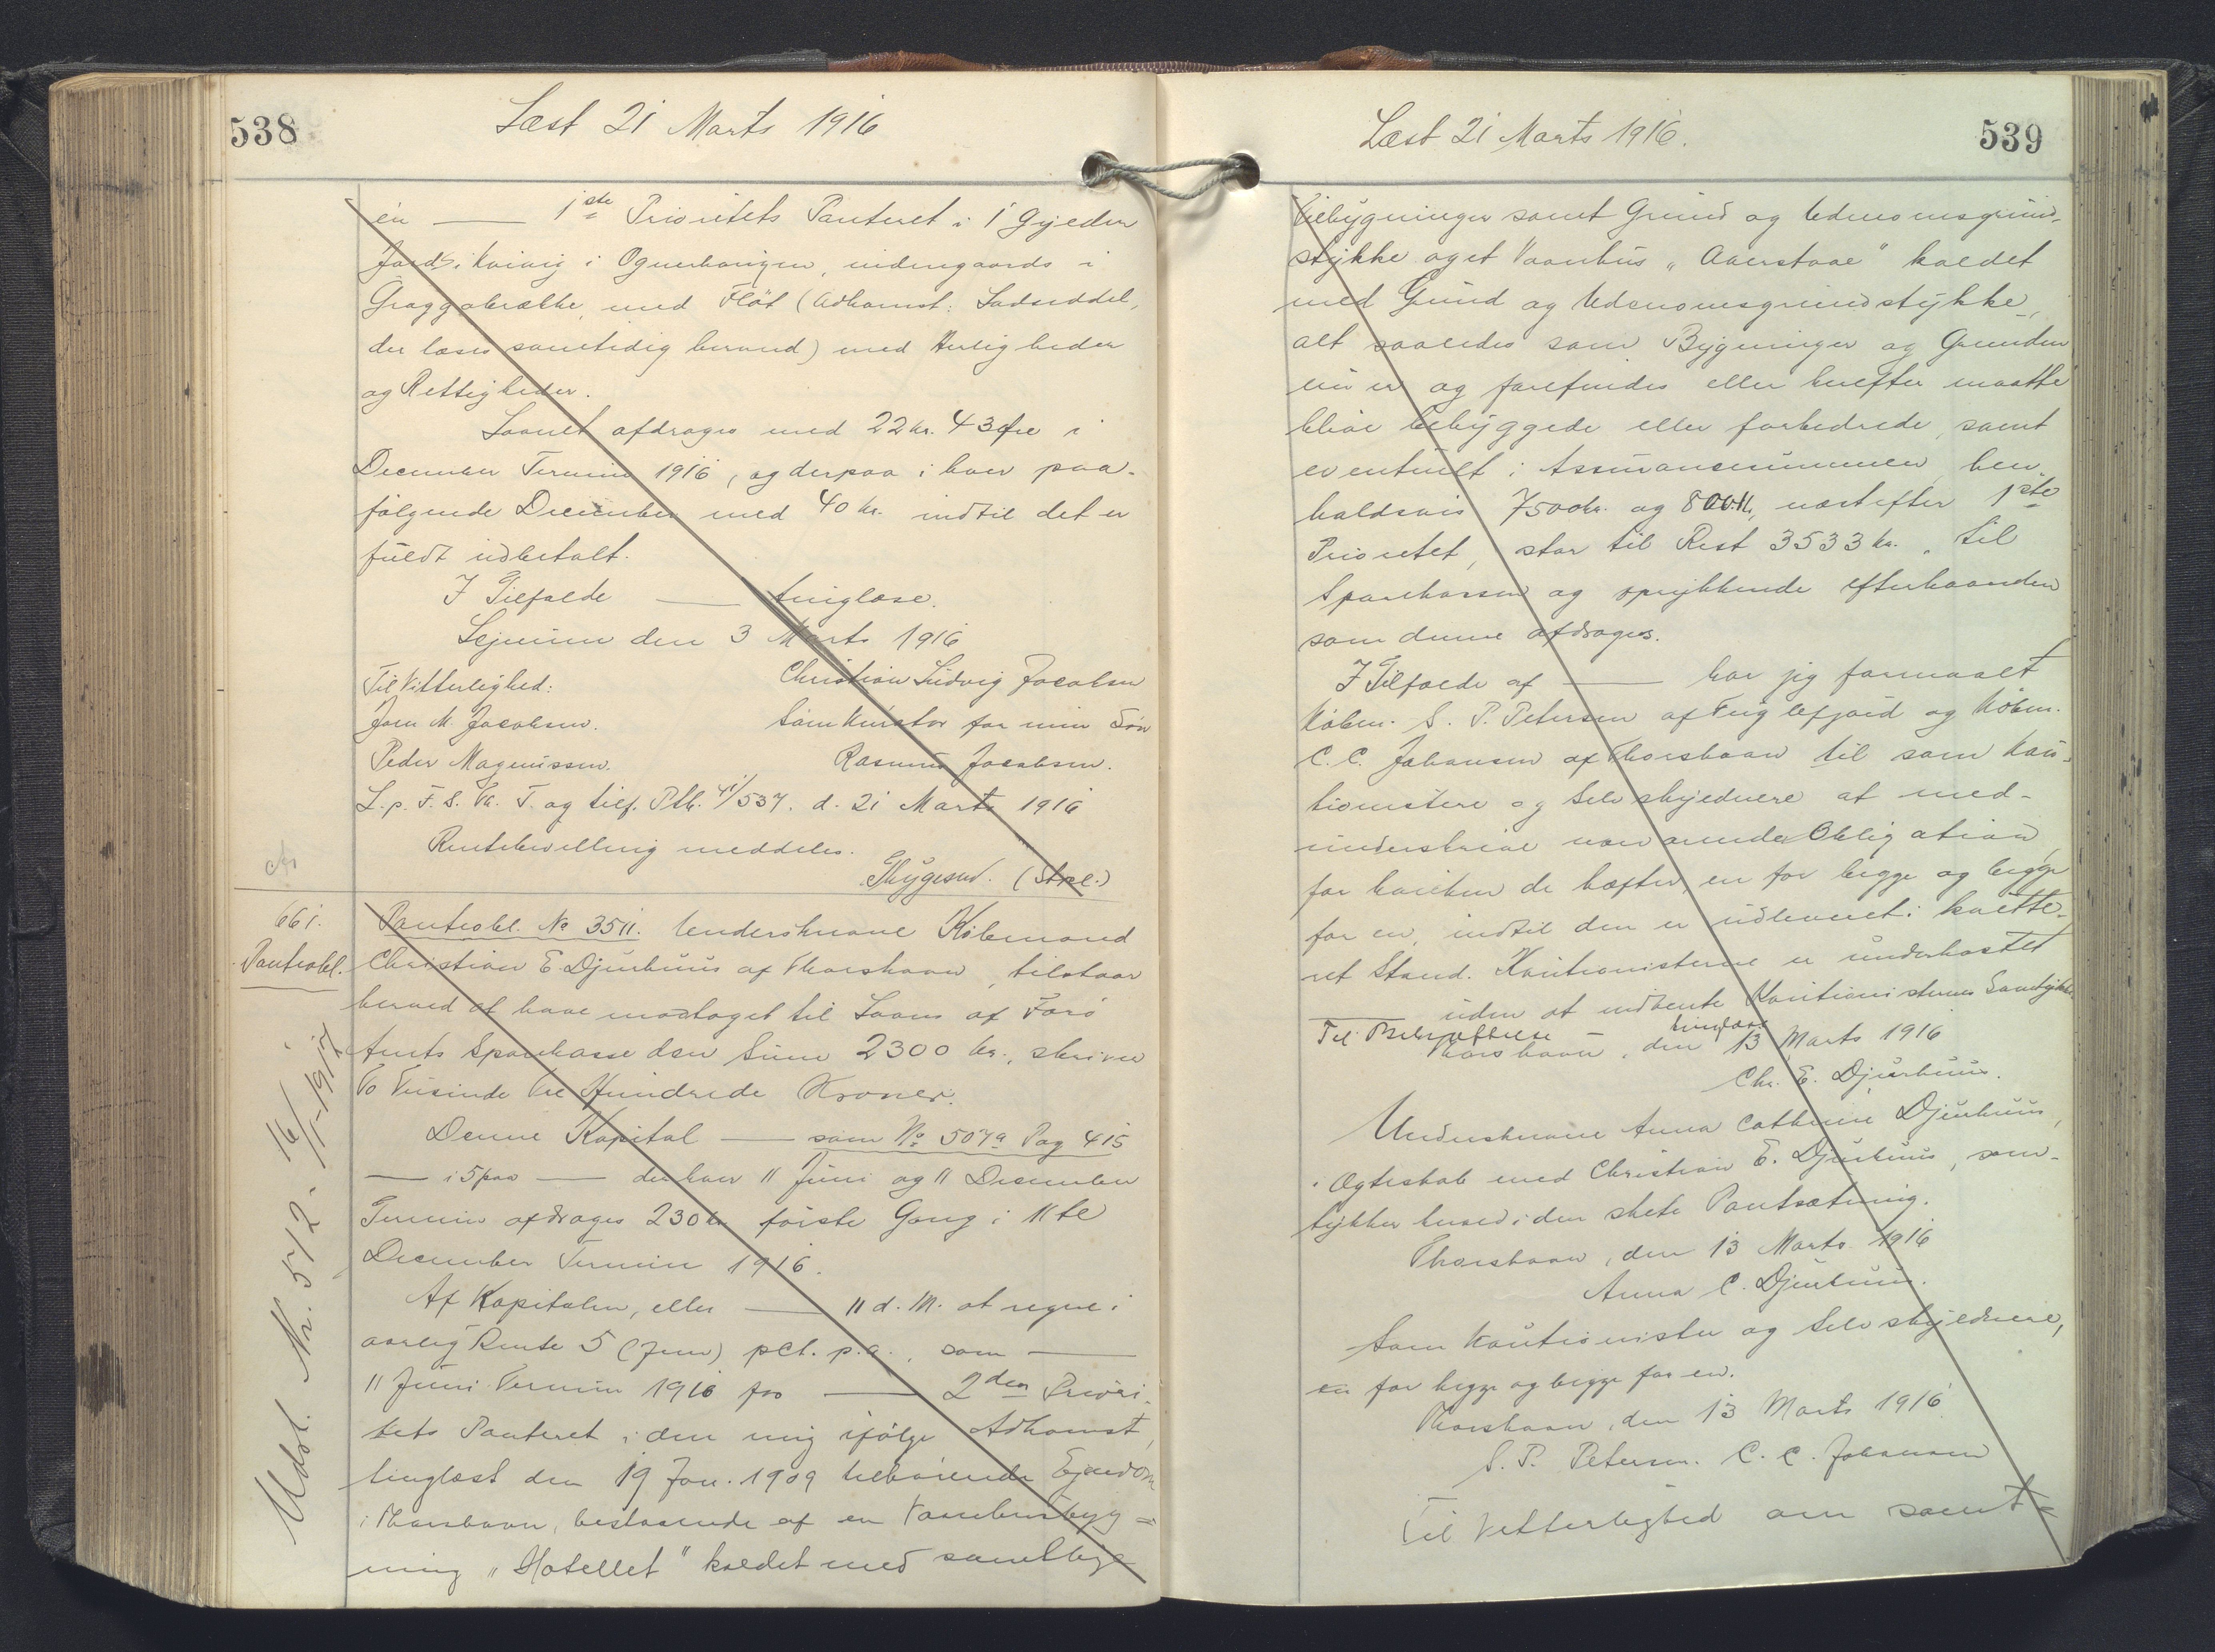 538
Læst 21 Marts 1916
en — 1ste Prioritets Panteret i 1 Gyeden
Jord i Kvivig i Ognerhaugen, indengaards i
Graggabrække, med Flöt (Adkomst: Ladseddel,
der læses samtidig hermed) med Herligheder
og Rettigheder.
Laanet afdrages med 22 kr. 43 Øre i
December Termin 1916, og derpaa i hver paa-
følgende December med 40 kr. indtil det er
fuldt udbetalt.
I Tilfælde — tinglæse.
Lejnum den 3 Marts 1916
Til Vitterlighed: Christian Ludvig Jacobsen
Joen M. Jacobsen. Som Kurator for min Søn
Peder Magnussen. Rasmus Jacobsen.
L. p. F. S. Va. T. og tilf. Ptb. 41/537. d. 21 Marts 1916
Rentebevilling meddeles.
Thygesen. (Stpl.)
661.
Panteobl.
Udsl. Nr. 572. - 16/11-1917
Panteobl. No 3511. Underskrevne Købmand
Christian E. Djurhuus af Thorshavn, tilstaar
herved at have modtaget til Laans af Færø
Amts Sparekasse den Sum 2300 kr., skriver
To Tusinde Tre Hundrede Kroner.
Denne Kapital — som No 507a Pag 415
— i 5 paa — der hver 11 Juni og 11 December
Termin afdrages 230 kr første Gang i 11te
December Termin 1916.
Af Kapitalen, eller — 11 d. M. at regne i
aarlig Rente 5 (fem) pct. p.a., som —
11 Juni Termin 1916 fra — 2den Priori-
tets Panteret i den mig ifølge Adkomst,
tinglæst den 19 Jan. 1909 tilhørende Ejendom
i Thorshavn, bestaaende af en Vaanhusbyg=
ning "Hotellet" kaldet med samtlige
539
Læst 21 Marts 1916.
Tilbygninger samt Grund og Udenomsgrund-
stykke og et Vaanhus "Aaerstove" kaldet
med Grund og Udenomsgrundstykke,
alt saaledes som Bygninger og Grunden
nu er og forefindes eller herefter maatte
blive bebyggede eller forbedrede, samt
eventuelt i Assurancesummen, hen-
holdsvis 7500 kr. og 800 Kr., næstefter 1ste
Prioritet, stor til Rest 3533 kr., til
Sparekassen og oprykkende efterhaanden
som denne afdrages.
I Tilfælde af — har jeg formaaet
Købm. S. P. Petersen af Fuglefjord og Købm.
C. C. Johansen af Thorshavn til som Kau-
tionister og Selvskyldnere at med-
underskrive nærværende Obligation
for hvilken de hæfter, en for begge og begge
for en, indtil den er udleveret i kvitte-
ret Stand. Kautionisterne er underkastet
uden at indhente Kautionisternes Samtykke
Til Bekræftelse —
Thorshavn, den 13 Marts 1916
Chr. E. Djurhuus.
Underskrevne Anna Cathrine Djurhuus,
i Ægteskab med Christian E. Djurhuus, sam-
tykker herved i den skete Pantsætning.
Thorshavn, den 13 Marts 1916
Anna C. Djurhuus.
Som Kautionister og Selvskyldnere,
en for begge og begge for en.
Thorshavn, den 13 Marts 1916
S. P. Petersen. C. C. Johansen
Til Vitterlighed om samt=